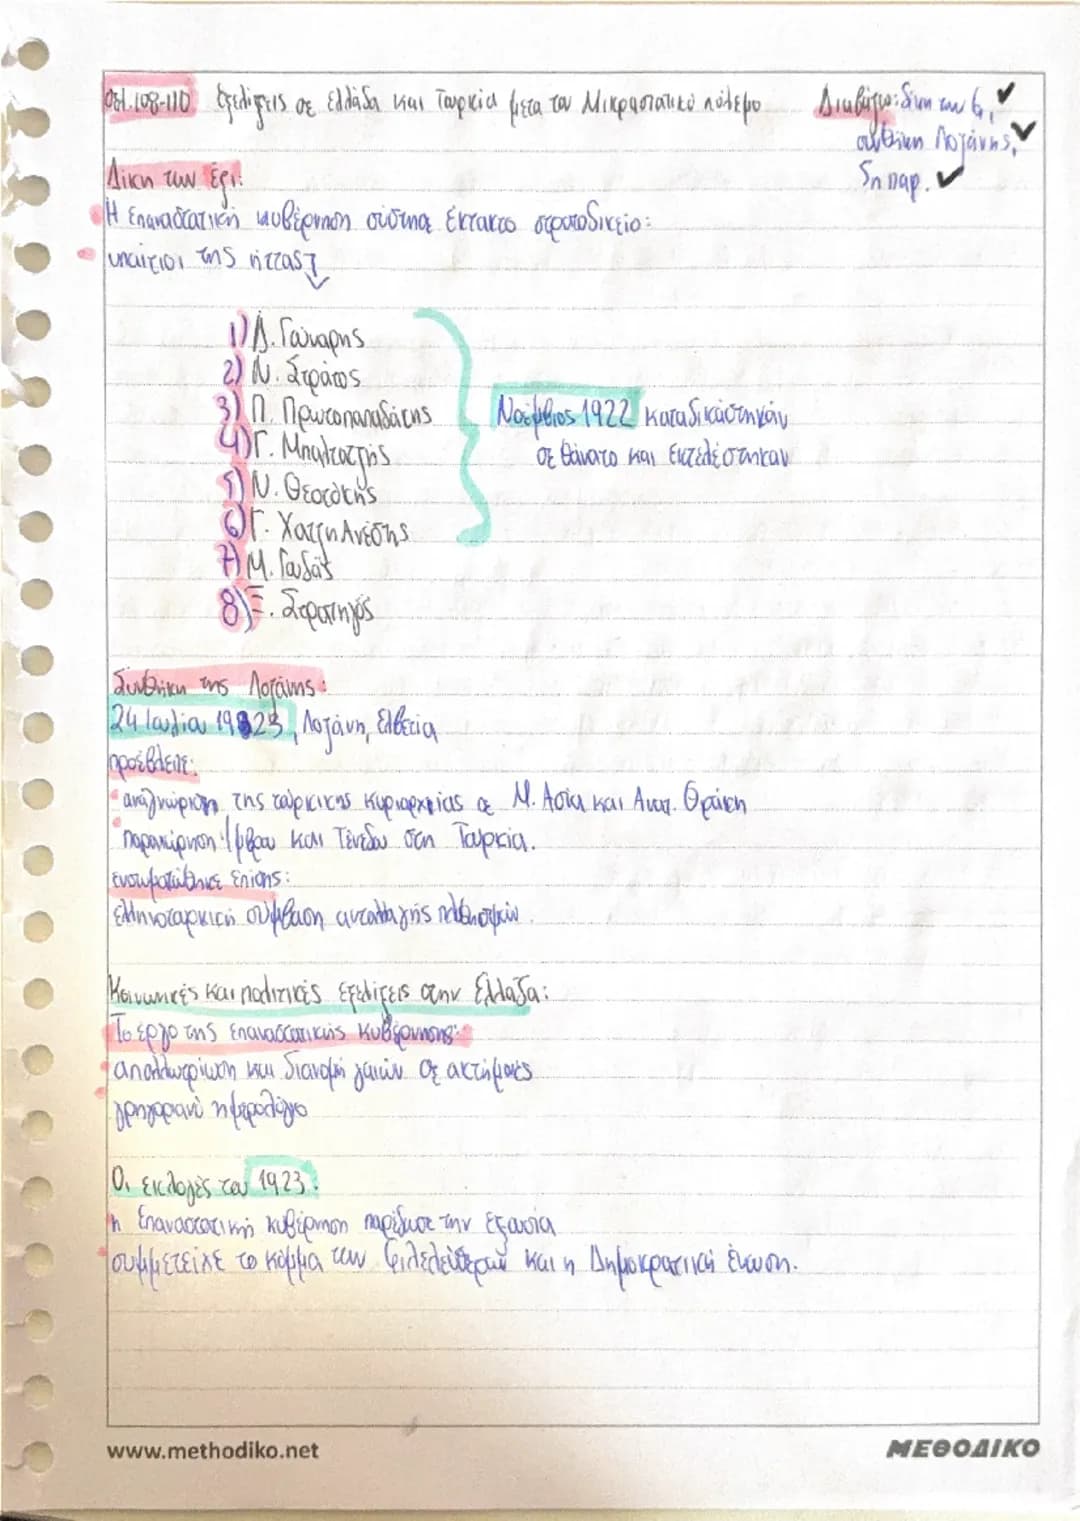 σελ.108-110 Εξελίξεις σε Ελλάδα και Τουρκία μετα τον Μικρασιατικό πόλεμο
Διαβάζω: δίκη των 6, ✓
συνθήκη Λοζάνης, ✓
5η παρ. ✓
Δίκη των έξι:
Η Επαναστατική κυβέρνηση σύστησε έκτακτο στρατοδικείο:
υπαίτιοι της ήττας
1) Δ. Γούναρης
2) Ν. Στράτος
3) Π. Πρωτοπαπαδάκης
4) Γ. Μπαλτατζής
5) Ν. Θεοτόκης
6) Γ. ΧατζηΑνέστης
7) Μ. Γουδάς
8) Ξ. Στρατηγός
Νοέμβριος 1922 καταδικάστηκαν
σε θάνατο και εκτελέστηκαν
Συνθήκη της Λοζάνης:
24 Ιουλίου 1923, Λοζάνη, Ελβετία
προέβλεπε:
αναγνώριση της τουρκικης κυριαρχείας σε Μ. Ασία και Ανατ. Θράκη
παραχώρηση Ίμβρου και Τένεδου στη Τουρκία.
ενσωματώθηκε επίσης:
ελληνοτουρκική σύμβαση ανταλλαγής πληθυσμών.
Κοινωνικές και πολιτικές εξελίξεις στην Ελλάδα:
Το έργο της επαναστατικής κυβέρνησης:
απαλλωτρίωση και διανομή γαιών σε ακτήμονες
γρηγοριανό ημερολόγιο
Οι εκλογές του 1923:
η Επαναστατική κυβέρνηση παρέδωσε την εξουσία
συμμετείχε το κόμμα των Φιλελεύθερων και η Δημοκρατική ένωση.
www.methodiko.net
ΜΕΘΟΔΙΚΟ